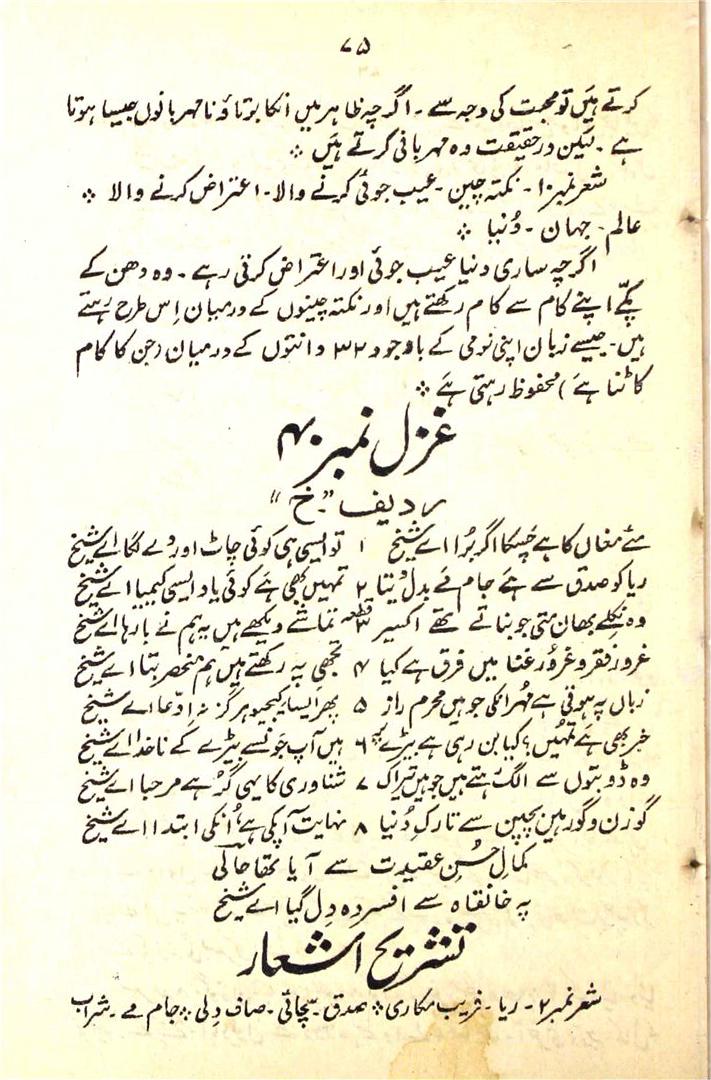 ۷۵
کرتے ہیں تو محبت کی وجہ سے ۔ اگرچہ ظاہر میں انکا برتاؤ نا مہربانوں جیسا ہوتا
ہے ۔ لیکن در حقیقت وہ مہربانی کرتے ہیں ❖
شعر نمبر ۱۰ ۔ نکتہ چین ۔ عیب جوئی کرنے والا ۔ اعتراض کرنے والا ❖
عالم ۔ جہان ۔ دُنیا ❖
اگرچہ ساری دنیا عیب جوئی اور اعتراض کرتی رہے ۔ وہ دھن کے
پکّے اپنے کام سے کام رکھتے ہیں اور نکتہ چینوں کے درمیان اِس طرح رہتے
ہیں ۔ جیسے زبان اپنی نرمی کے باوجود ۳۲ دانتوں کے درمیان (جن کا کام
کاٹنا ہے) محفوظ رہتی ہے ❖
غزل نمبر ۴۰
ردیف "خ"
مئے مغاں کا ہے چُسکا اگر بُرا اے شیخ ۱ تو ایسی ہی کوئی چاٹ اور دے لگا اے شیخ
ریا کو صدق سے ہے جام مے بدل دیتا ۲ تمہیں بھی ہے کوئی یاد ایسی کیمیا اے شیخ
وہ نکلے بھان متی جو بناتے تھے اکسیر ۳ قطعہ تماشے دیکھے ہیں یہ ہم نے بارہا اے شیخ
غرور فقر و غرور غنا میں فرق ہے کیا ۴ تجھی پہ رکھتے ہیں ہم منحصر بتا اے شیخ
زباں پہ ہوتی ہے مُہر انکی جو ہیں محرم راز ۵ پھر ایسا کیجیو ہرگز نہ اِدّعا اے شیخ
خبر بھی ہے تمہیں؟ کیا بن رہی ہے بیڑے پہ ۶ ہیں آپ جونسے بیڑے کے ناخدا اے شیخ
وہ ڈوبتوں سے الگ رہتے ہیں جو ہیں تیراک ۷ شناوری کا یہی گُر ہے مرحبا اے شیخ
گوزن و گور ہیں بچپن سے تارکِ دُنیا ۸ نہایت آپکی ہے، اُنکی ابتدا اے شیخ
کمالِ حُسنِ عقیدت سے آیا تھا حالی
پہ خانقاہ سے افسردہ دِل گیا اے شیخ
تشریح اشعار
شعر نمبر ۲ ۔ ریا ۔ فریب مکاری ❖ صدق ۔ سچائی ۔ صاف دِلی ❖ جام مے ۔ شراب